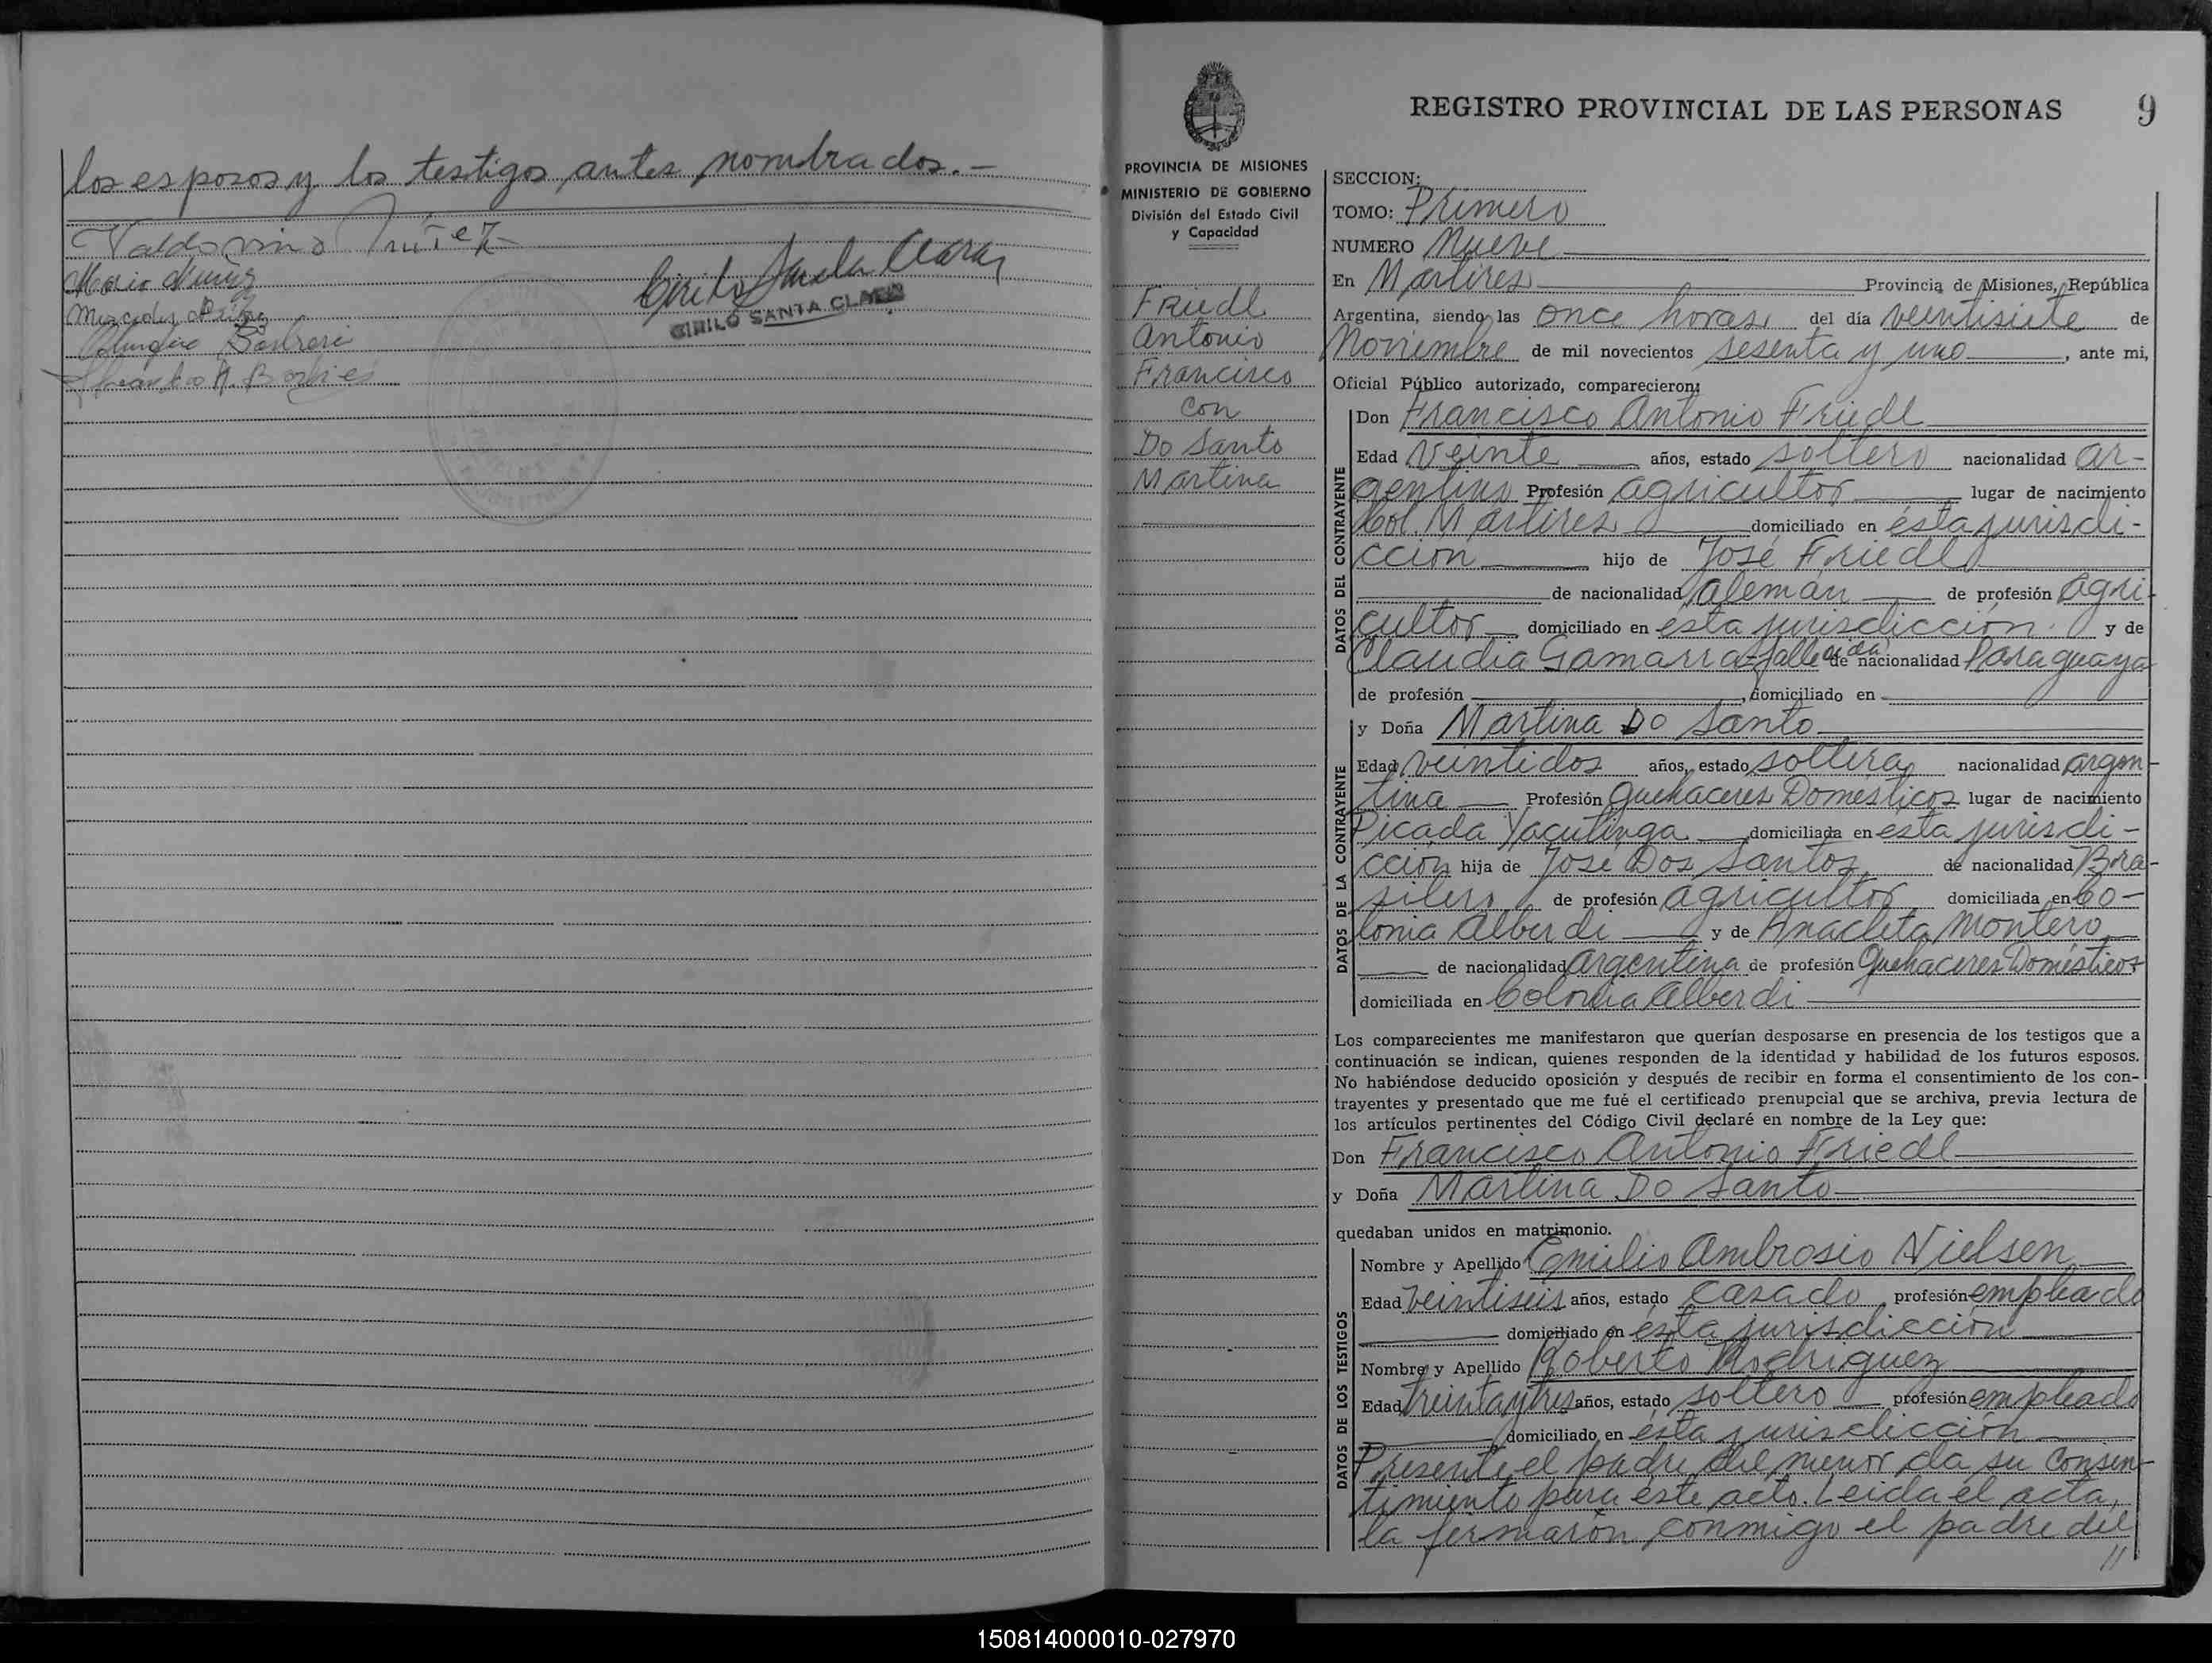 los esposos y los testigos antes nombrados.-
Valdovino
Mario
Mercedes
Cirilo Santa Clara
CIRILO SANTA CLARA
PROVINCIA DE MISIONES
MINISTERIO DE GOBIERNO
División del Estado Civil
y Capacidad
Friedl
Antonio
Francisco
con
Do Santo
Martina
REGISTRO PROVINCIAL DE LAS PERSONAS 9
SECCION:
TOMO: Primero
NUMERO Nueve
En Martires Provincia de Misiones, República
Argentina, siendo las once horas del día veintisiete de
Noviembre de mil novecientos sesenta y uno, ante mi,
Oficial Público autorizado, comparecieron:
DATOS DEL CONTRAYENTE
Don Francisco Antonio Friedl
Edad Veinte años, estado soltero nacionalidad ar-
gentino Profesión agricultor lugar de nacimiento
Col. Martires domiciliado en ésta jurisdi-
cción hijo de José Friedl
de nacionalidad alemán de profesión Agri-
cultor domiciliado en ésta jurisdicción. y de
Claudia Gamarra-fallecida de nacionalidad Paraguaya
de profesión , domiciliado en
DATOS DE LA CONTRAYENTE
y Doña Martina Do Santo
Edad veintidos años, estado soltera nacionalidad argen-
tina Profesión Quehaceres Domésticos lugar de nacimiento
Picada Yacutinga domiciliada en ésta jurisdi-
cción hija de José Dos Santos de nacionalidad Bra-
silero de profesión agricultor domiciliada en Co-
lonia Alberdi y de Anacleta Montero
de nacionalidad Argentina de profesión Quehaceres Domésticos
domiciliada en Colonia Alberdi
Los comparecientes me manifestaron que querían desposarse en presencia de los testigos que a
continuación se indican, quienes responden de la identidad y habilidad de los futuros esposos.
No habiéndose deducido oposición y después de recibir en forma el consentimiento de los con-
trayentes y presentado que me fué el certificado prenupcial que se archiva, previa lectura de
los artículos pertinentes del Código Civil declaré en nombre de la Ley que:
Don Francisco Antonio Friedl
y Doña Martina Do Santo
quedaban unidos en matrimonio.
DATOS DE LOS TESTIGOS
Nombre y Apellido Emilio Ambrosio Nielsen
Edad Veintiseis años, estado Casado profesión empleado
domiciliado en ésta jurisdicción
Nombre y Apellido Roberto Rodriguez
Edad treinta y tres años, estado soltero profesión empleado
domiciliado en ésta jurisdicción
Presente el padre del menor da su Consen-
timiento para éste acto. Leida el acta,
la firmarón conmigo el padre del
//
150814000010-027970